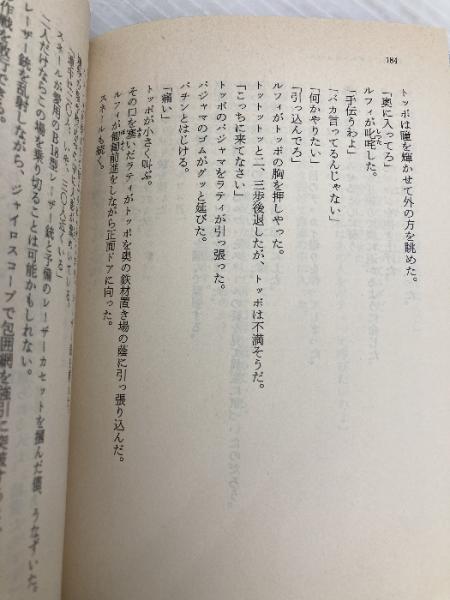 184
トッポは瞳を輝かせて外の方を眺めた。
「奥に入ってろ」
ルフィが叱咤した。
「手伝うわよ」
「バカ言ってるんじゃない」
「何かやりたい」
「引っ込んでろ」
ルフィがトッポの胸を押しやった。
トットットッと二、三歩後退したが、トッポは不満そうだ。
「こっちに来てなさい」
トッポのパジャマをラティが引っ張った。
パジャマのゴムがグッと延びた。
パチンとはじける。
「痛い」
トッポが小さく叫ぶ。
その口を塞いだラティがトッポを奥の鉄材置き場の蔭に引っ張り込んだ。
ルフィが匍匐前進をしながら正面ドアに向った。
スネールも続く。
いや、三〇人近くいる」
スネールが愛用のB18型レーザー銃と予備のレーザーカセットを掴んだ僕、うなずいた。
二人だけならこの場を乗り切ることは可能かもしれない。
レーザー銃を乱射しながら、ジャイロスコープで包囲網を強引に突破する
作戦を敢行できる。